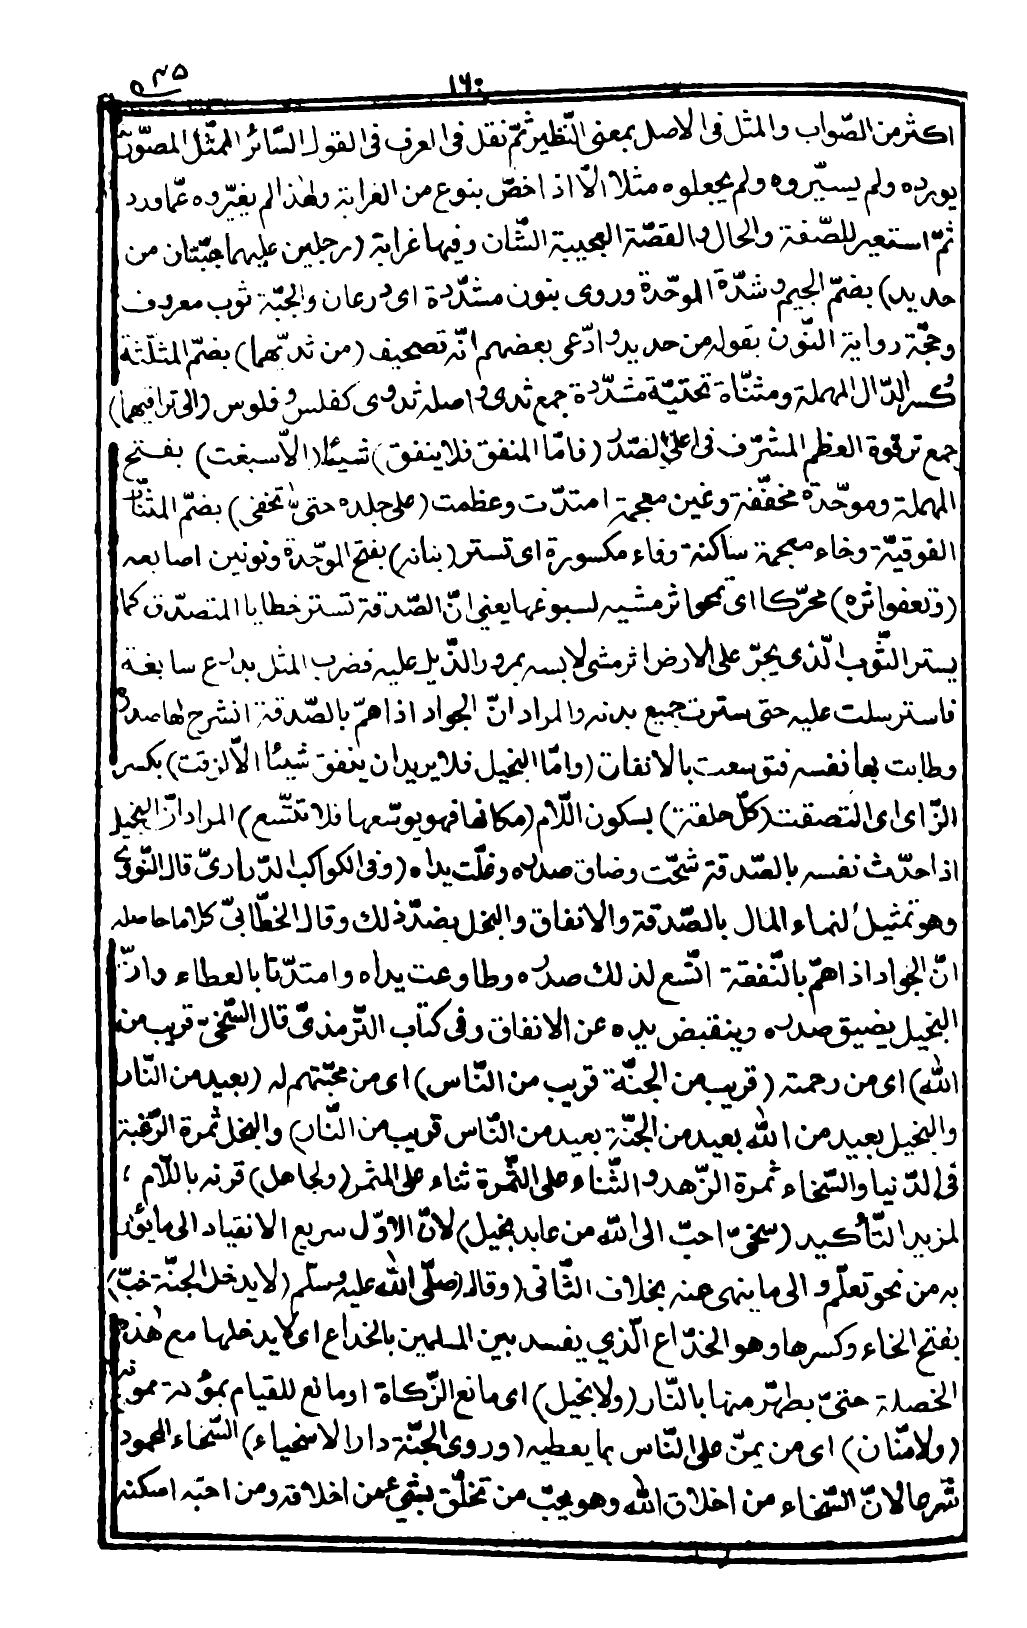 ١٦٠
اكثر من الصّواب والمثل فى الاصل بمعنى النّظير ثمّ نقل فى العرف فى القول السّائر الممثّل المصوّن
يورده ولم يسيّروه ولم يجعلوه مثلا الّا اذ اخصّ بنوع من الغرابة ولهٰذا لم يغيّروه عمّا ورد
ثمّ استعير للصّفة والحال والقصّة العجيبة الشّان وفيها غرابة (رجلين عليهما جبّتان من
حديد) بضمّ الجيم وشدّة الموحّدة وروى بنون مشدّدة اى درعان والجبّة ثوب معروف
وحجّة رواية النّون بقوله من حديد وادّعى بعضهم انّه تصحيف (من ثديّهما) بضمّ المثلّثة
وكسر الدّال المهملة ومثنّاة تحتيّة مشدّدة جمع ثدى واصله ثدوى كفلس وفلوس (الى تراقيهما)
جمع ترقوة العظم المشرّف فى اعلى الصّدر (فامّا المنفق فلا ينفق) شيئا (الّا سبغت) بفتح
المهملة وموحّدة مخفّفة وغين معجمة امتدّت وعظمت (على جلده حتىّٰ تخفى) بضمّ المثنّاة
الفوقيّة وخاء معجمة ساكنة وفاء مكسورة اى تستر (بنانه) بفتح الموحّدة ونونين اصابعه
(وتعفو اثره) محرّكا اى تمحو اثر مشيه لسبوغها يعنى انّ الصّدقة تستر خطايا المتصدّق كما
يستر الثّوب الّذى يجرّ على الارض اثر مشى لابسه بمرور الذّيل عليه فضرب المثل بدرع سابغة
فاسترسلت عليه حتى سترت جميع بدنه والمراد انّ الجواد اذا همّ بالصّدقة انشرح لها صدره
وطابت بها نفسه فتوسعت بالانفاق (وامّا البخيل فلا يريد ان ينفق شيئا الّا لزقت) بكسر
الزّاى اى التصقت (كلّ حلقة) بسكون اللّام (مكانها فهو يوسّعها فلا تتّسع) المراد انّ البخيل
اذا حدّث نفسه بالصّدقة شحّت وضاق صدره وغلّت يداه (وفى الكواكب الدّرارىّ قال النّووى
وهو تمثيل لنماء المال بالصّدقة والانفاق والبخل بضدّ ذلك وقال الخطّابىّ كلاما حاصله
انّ الجواد اذا همّ بالنّفقة اتّسع لذلك صدره وطاوعت يداه وامتدّتا بالعطاء وانّ
البخيل يضيق صدره وينقبض يده عن الانفاق وفى كتاب التّرمذىّ قال السّخىّ قريب من
اللّٰه) اى من رحمته (قريب من الجنّة قريب من النّاس) اى من محبّتهم له (بعيد من النّار
والبخيل بعيد من اللّٰه بعيد من الجنّة بعيد من النّاس قريب من النّار) والبخل ثمرة الرّغبة
فى الدّنيا والسّخاء ثمرة الزّهد والثّناء على الثّمرة ثناء على المثمر (ولجاهل) قرنه باللّام
لمزيد التّأكيد (سخىّ احبّ الى اللّٰه من عابد بخيل) لانّ الاوّل سريع الانقياد الى ما يؤمر
به من نحو تعلّم والى ما ينهى عنه بخلاف الثّانى (وقال (صلّى اللّٰه عليه وسلّم (لا يدخل الجنّة خبّ)
بفتح الخاء وكسرها وهو الخدّاع الّذي يفسد بين المسلمين بالخداع اى لا يدخلها مع هٰذه
الخصلة حتىّ يطهّر منها بالنّار (ولا بخيل) اى مانع الزّكاة او مانع للقيام بمؤنة ممونه
(ولا منّان) اى من يمنّ على النّاس بما يعطيه (وروى الجنّة دار الاسخياء) السّخاء المحمود
شرعا لانّ السّخاء من اخلاق اللّٰه وهو يحبّ من تخلّق بشئ من اخلاقه ومن احبّه اسكنه